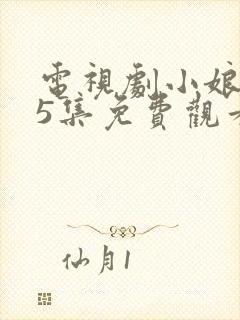 電視劇小娘
5集免費觀看
仙月1